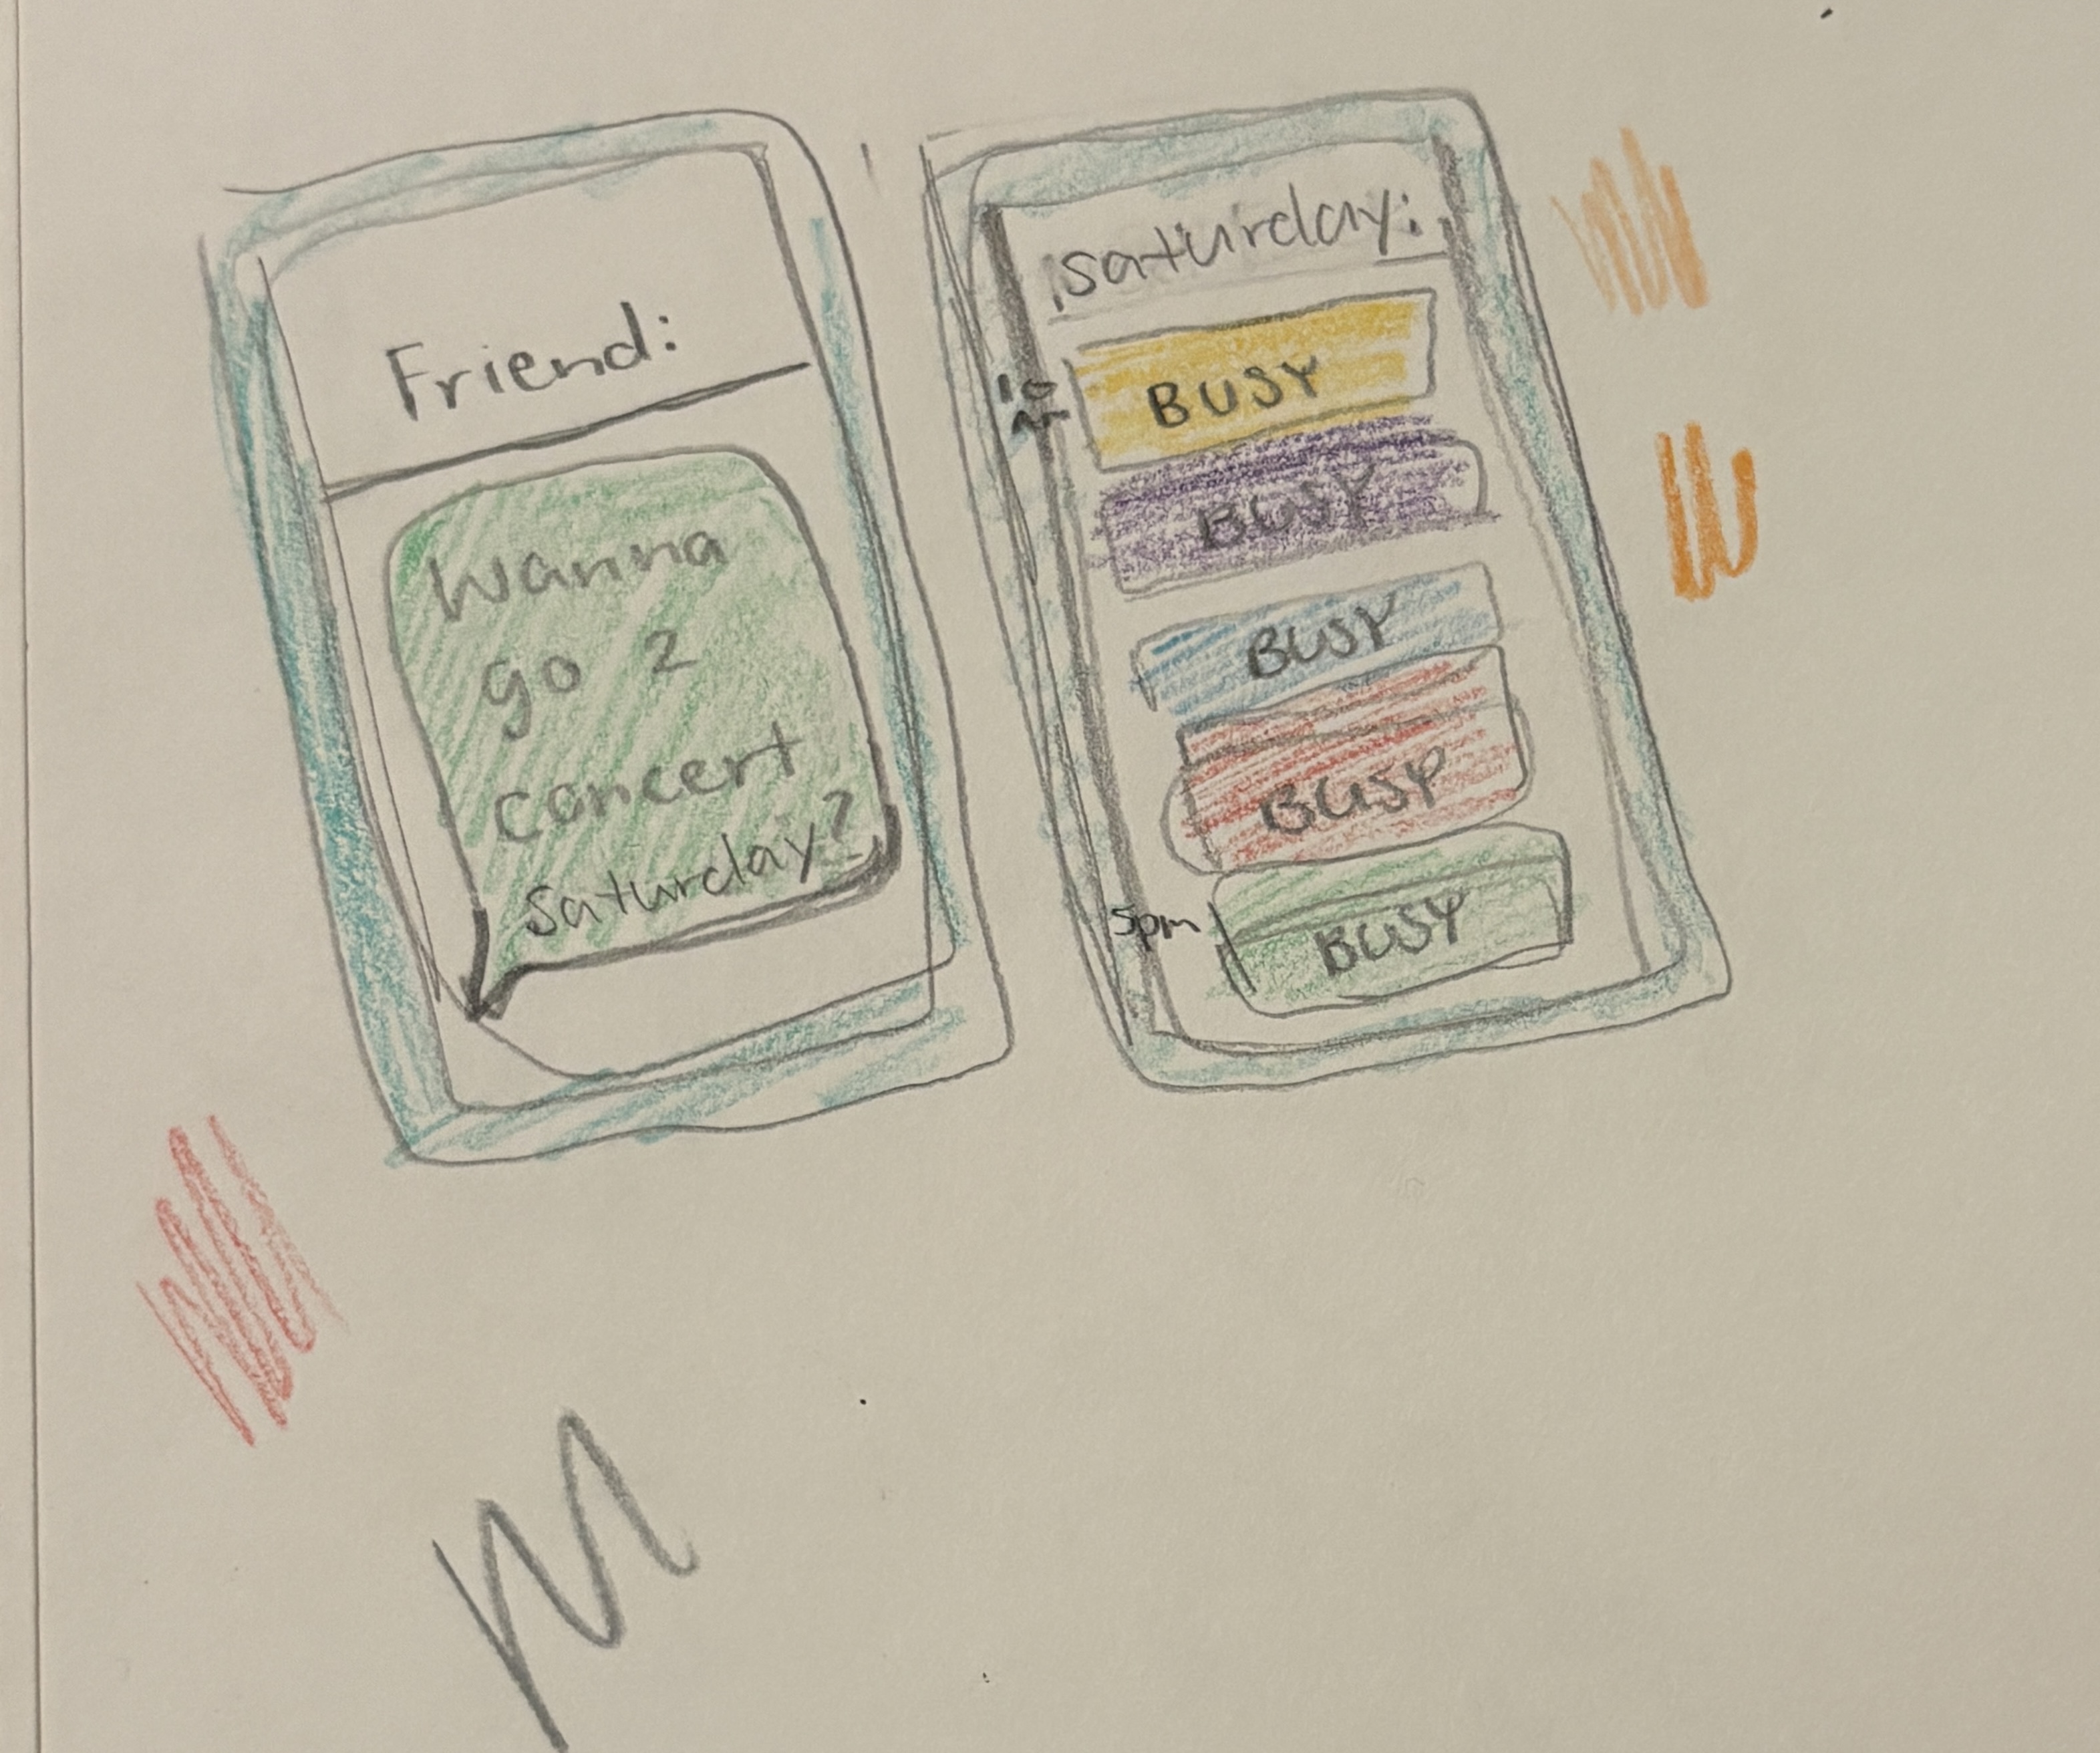 Friend:
Wanna
go 2
concert
Saturday?
Saturday:
BUSY
BUSY
BUSY
BUSY
5pm
BUSY